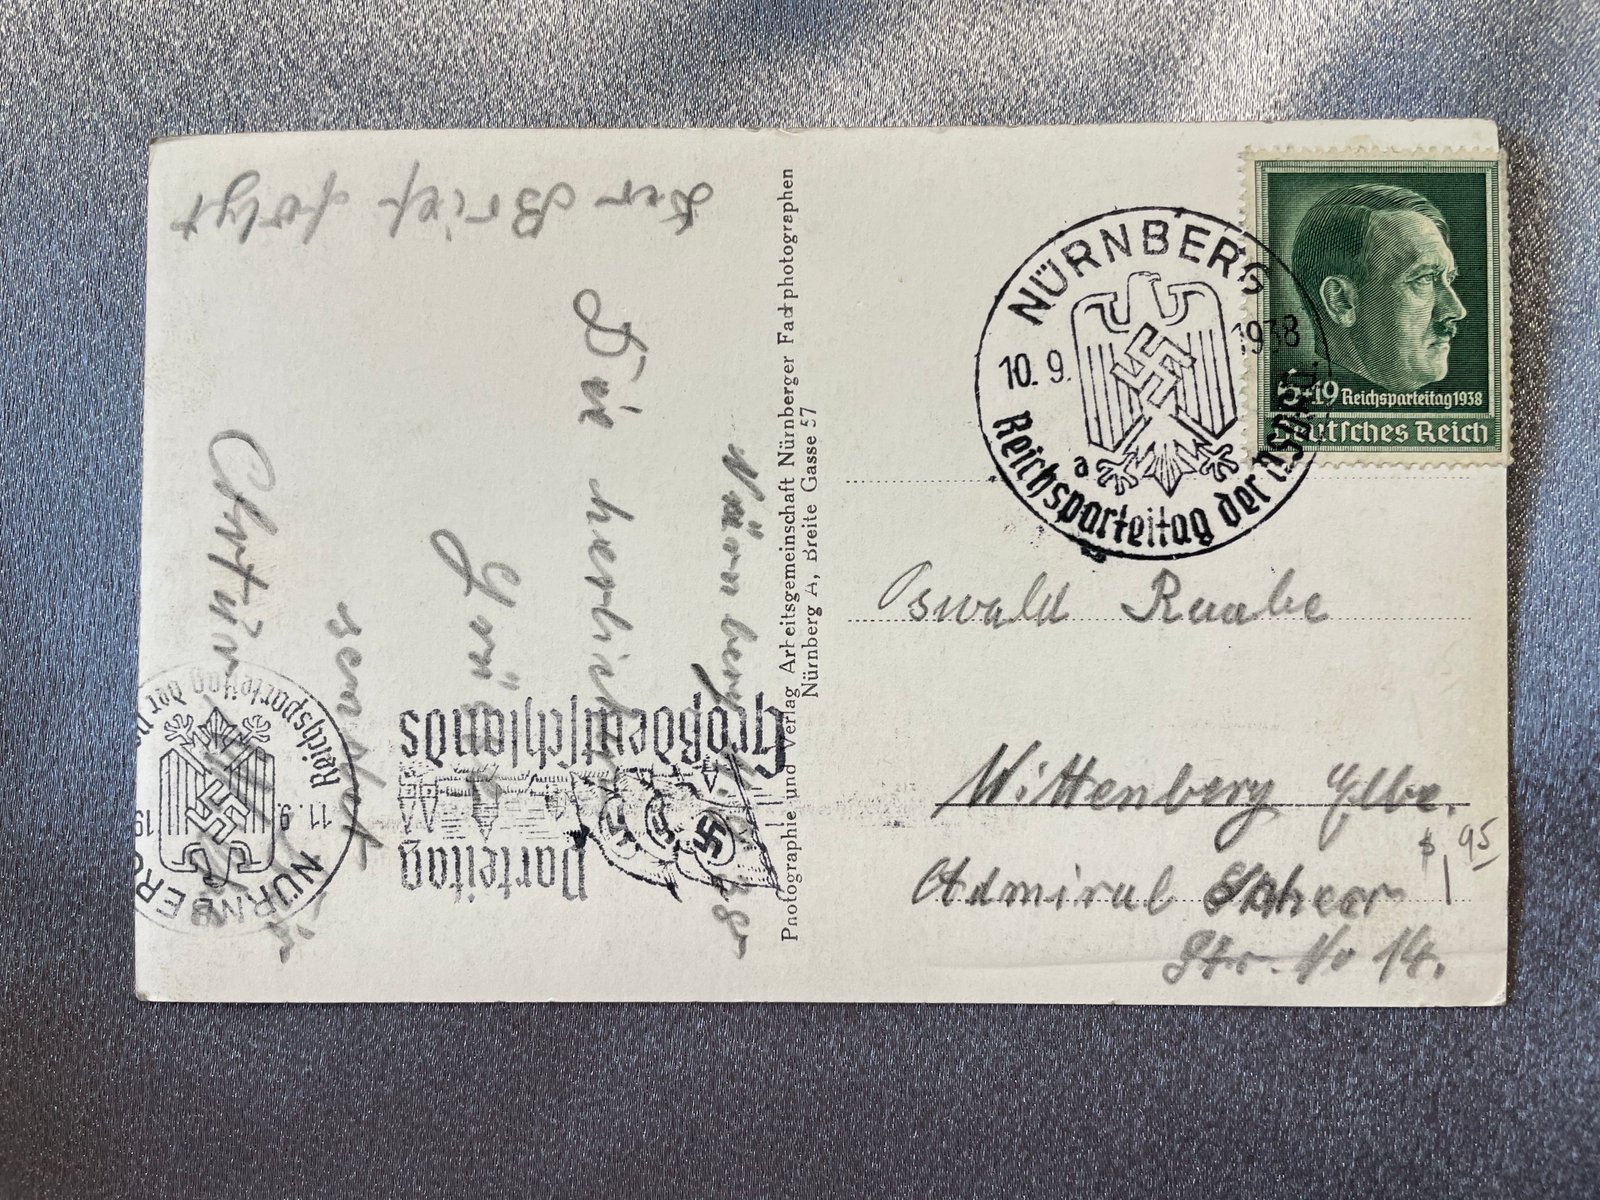 Der Brief folgt
Nürnberg
Die herzlichen
Grüße
sendet
Arthur
Photographie und Verlag Arbeitsgemeinschaft Nürnberger Fachphotographen
Nürnberg A, Breite Gasse 57
NÜRNBERG
10.9. 1938
a
Reichsparteitag der NSDAP
6+19 Reichsparteitag 1938
Deutsches Reich
Oswald Raabe
Wittenberg Elbe.
Admiral Scheer
Str. No 14.
$1,95
Parteitag
Großdeutschlands
NÜRNBERG
11.9. 19
Reichsparteitag der